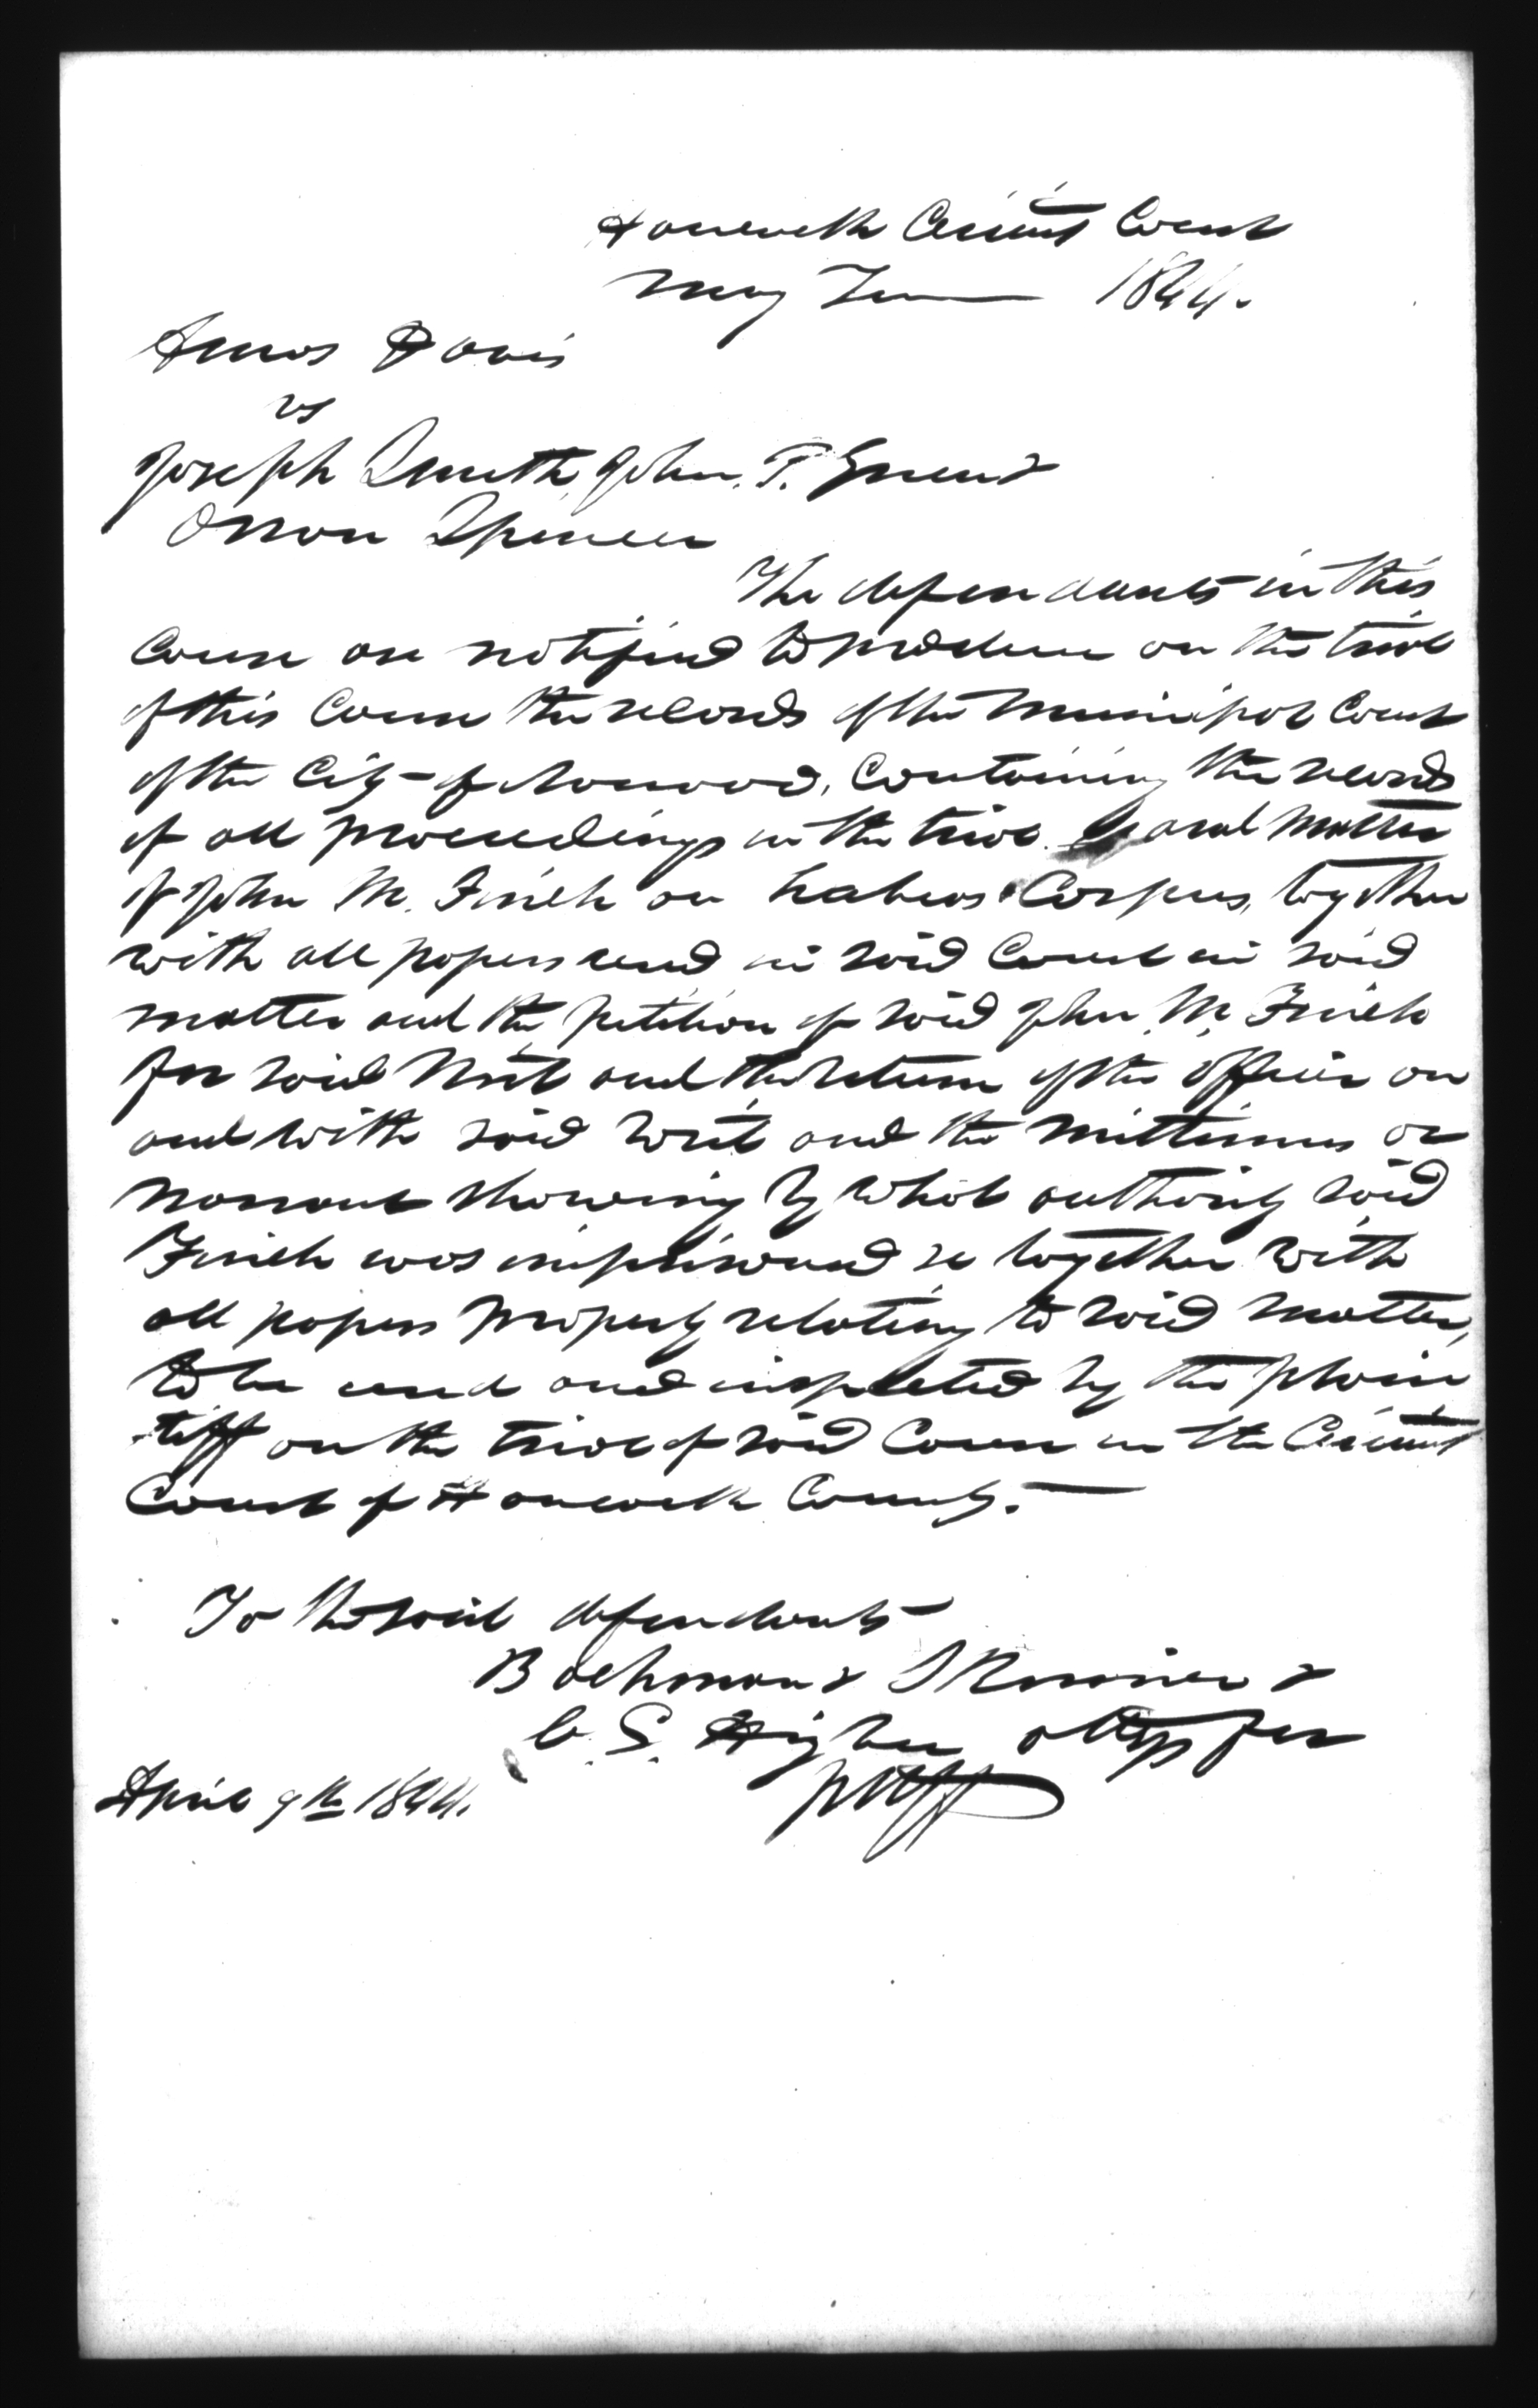 Hancock Circuit Court
May Term 1844.
Amos Davis
vs
Joseph Smith, John. P. Green &
Orson Spencer
The defendants in this
Cause are notified to produce on the trial
of this Cause the records of the Municipal Court
of the City of Nauvoo, Containing the records
of all proceedings in the trial and matter
of John M. Finch on habeas Corpus, together
with all papers used in said Court in said
matter and the petition of said John M. Finch
for said Writ and the return of the officer on
and with said writ and the mittimus or
warrant showing by what authority said
Finch was imprisoned &c together with
all papers properly relating to said matter,
to be used and inspected by the plain
tiff on the trial of said Cause in the Circuit
Court of Hancock County. —
To the said defendants
Bachman & Skinner &
C. S. Higbee attys for
plff
April 9th 1844.